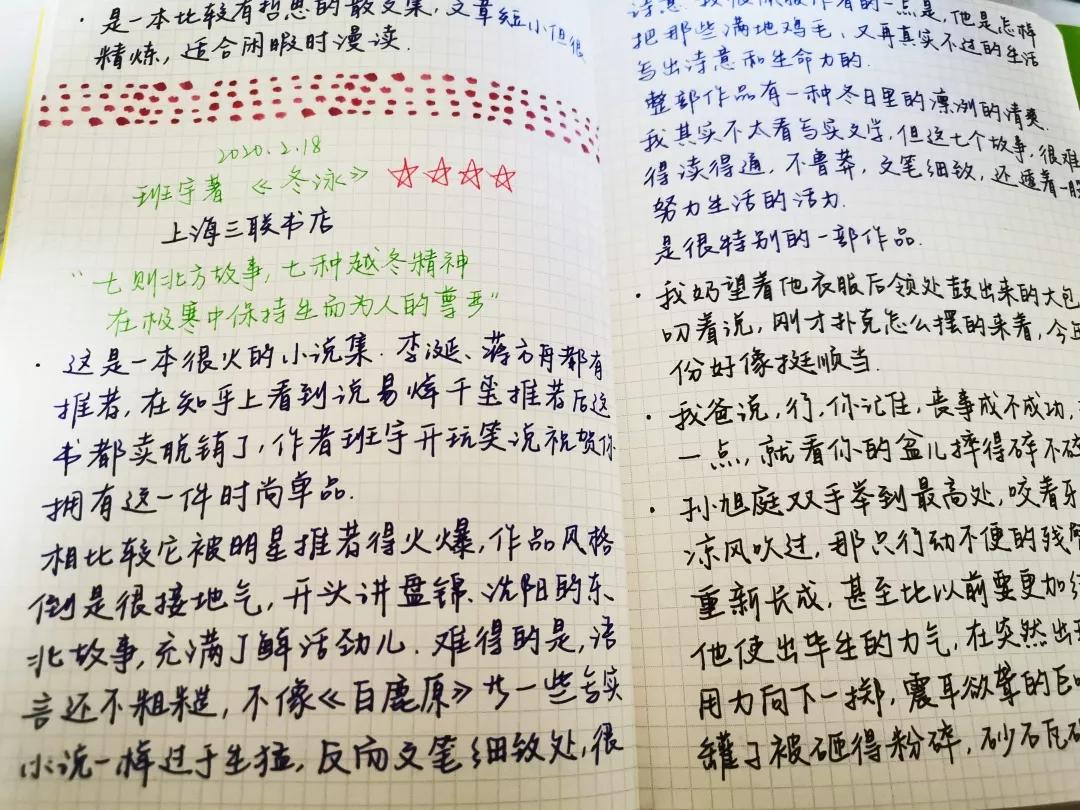 · 是一本比较有哲思的散文集，文章短小但很
精炼，适合闲暇时漫读.
2020.2.18
班宇著《冬泳》☆☆☆☆
上海三联书店
“七则北方故事，七种越冬精神
在极寒中保持生而为人的尊严”
· 这是一本很火的小说集. 李诞、蒋方舟都有
推荐，在知乎上看到说易烊千玺推荐后这
书都卖脱销了，作者班宇开玩笑说祝贺你
拥有这一件时尚单品.
相比较它被明星推荐得火爆，作品风格
倒是很接地气，开头讲盘锦、沈阳的东
北故事，充满了鲜活劲儿. 难得的是，语
言还不粗糙，不像《白鹿原》等一些写实
小说一样过于生猛，反而文笔细致处，很
诗意. 我很佩服作者的一点是，他是怎样
把那些满地鸡毛，又再真实不过的生活
写出诗意和生命力的.
整部作品有一种冬日里的凛冽的清爽.
我其实不太看写实文学，但这七个故事，很难
得读得通，不鲁莽，文笔细致，还透着一股
努力生活的活力.
是很特别的一部作品.
· 我妈望着他衣服后领处鼓出来的大包
叨着说，刚才扑克怎么摆的来着，今
份好像挺顺当.
· 我爸说，行，你记住，丧事成不成功，
一点，就看你的盆儿摔得碎不碎
· 孙旭庭双手举到最高处，咬着牙
凉风吹过，那只行动不便的残臂
重新长成，甚至比以前要更加
他使出毕生的力气，在突然出
用力向下一掷，震耳欲聋的巨
罐子被砸得粉碎，砂石瓦砾